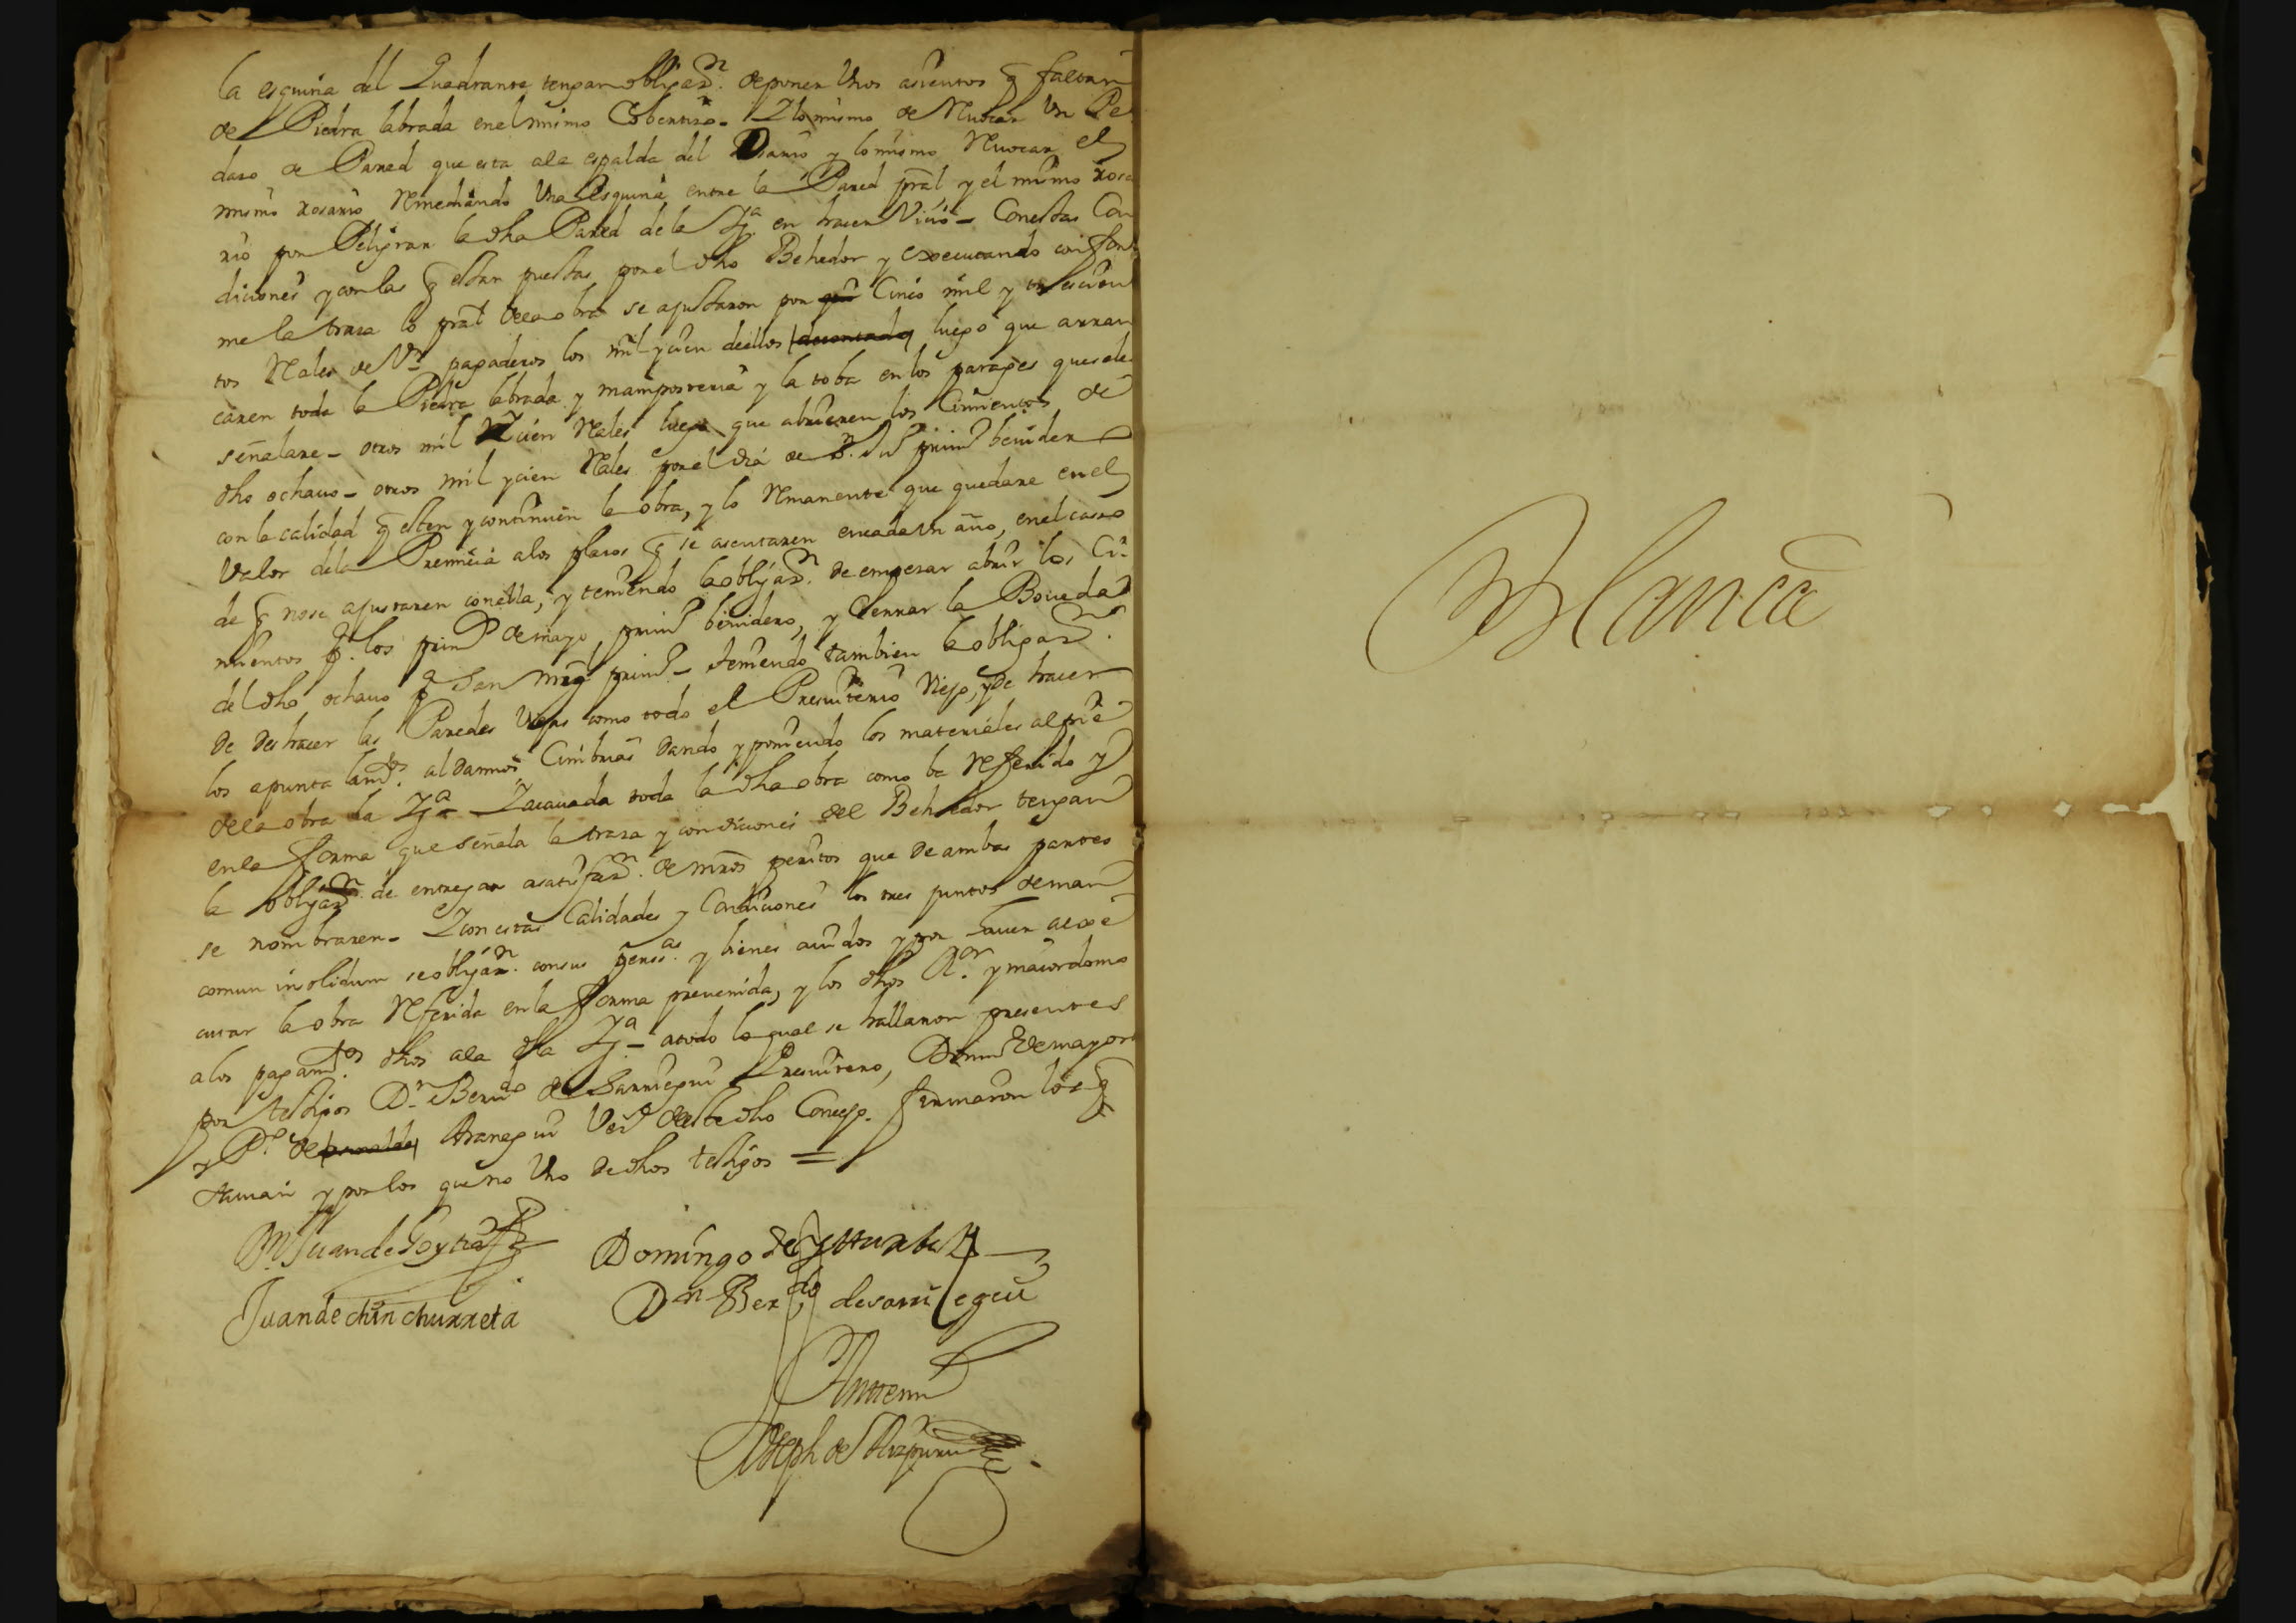 la esquina del Quadrante tengan obligazn. de poner Unos asientos q faltan
de Piedra labrada en el mismo Cobertizo - Y lo mismo de Revocar Un Pe
dazo de Pared que esta a la espalda del Osario y lo mismo Revocar el
mismo Rosario Remediando Una Esquina entre la Pared pral y el mismo Rosa
rio por Peligrar la dha Pared de la Yga. en hacer Vicio - Con estas Con
diciones y con las q estan puestas por el dho Behedor y executando confor
me la traza lo pral de la obra se ajustaron por Cinco mil y trescien
tos Reales de Vn. pagaderos los mil y cien de ellos luego que arran
caren toda la Piedra labrada y mamposteria y la toba en los parages que se les
señalare - otros mil Y cien Reales luego que abrieren los Cimientos de
dho ochauo - otros mil y cien Reales por el dia de Sn. Jn primo benider
con la calidad q esten y continuen la obra, y lo Remanente que quedare en el
Valor de la Premicia a los plazos q se asentaren en cada Un año, en el caso
de q no se ajustaren con ella, y teniendo la obligazn. de empezar abrir los Ci-
mientos pa. los primos de mayo primo benidero, y Serrar la Boueda
del dho ochauo pa San Migl primo - teniendo tambien la obligazn.
de deshacer las Paredes Viejas como todo el Presuiterio Viejo, y de hacer
los apuntalamtos. al Damios, Cimbrias dando y poniendo los materiales al pie
de la obra la Yga - Y acauada toda la dha obra como ba Referido y
en la forma que señala la traza y condiciones del Behedor tengan
la obligazn. de entregar a satisfazn. de mros peritos que de ambas partes
se nombraren - Y con estas Calidades y Condiciones los tres juntos de man
comun insolidum se obligan. con sus personas y bienes auidos y por hauer a exe
cutar la obra Referida en la forma preuenida, y los dhos Ror. y maiordomo
a los pagamtos. dhos a la dha Yga - a todo lo qual se hallaron presentes
por testigos Dn. Berndo de Sarriegui Presuitero,
y Po. de Aranegui Veso deste dho Concejo. firmaron los q
sauian y por los que no Uno de dhos testigos =
Dn Juan de Goytia
Domingo de Yturbe
Juan de chinchurreta
Dn Berdo de sarriegui
Antte mi
Joseph de Aizpuru
Blanca